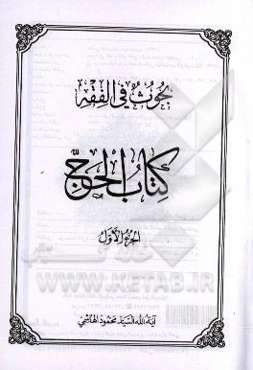 بحوث في الفقه
كتاب الحج
الجزء الأول
WWW.KETAB.IR
آية الله السيد محمود الهاشمي